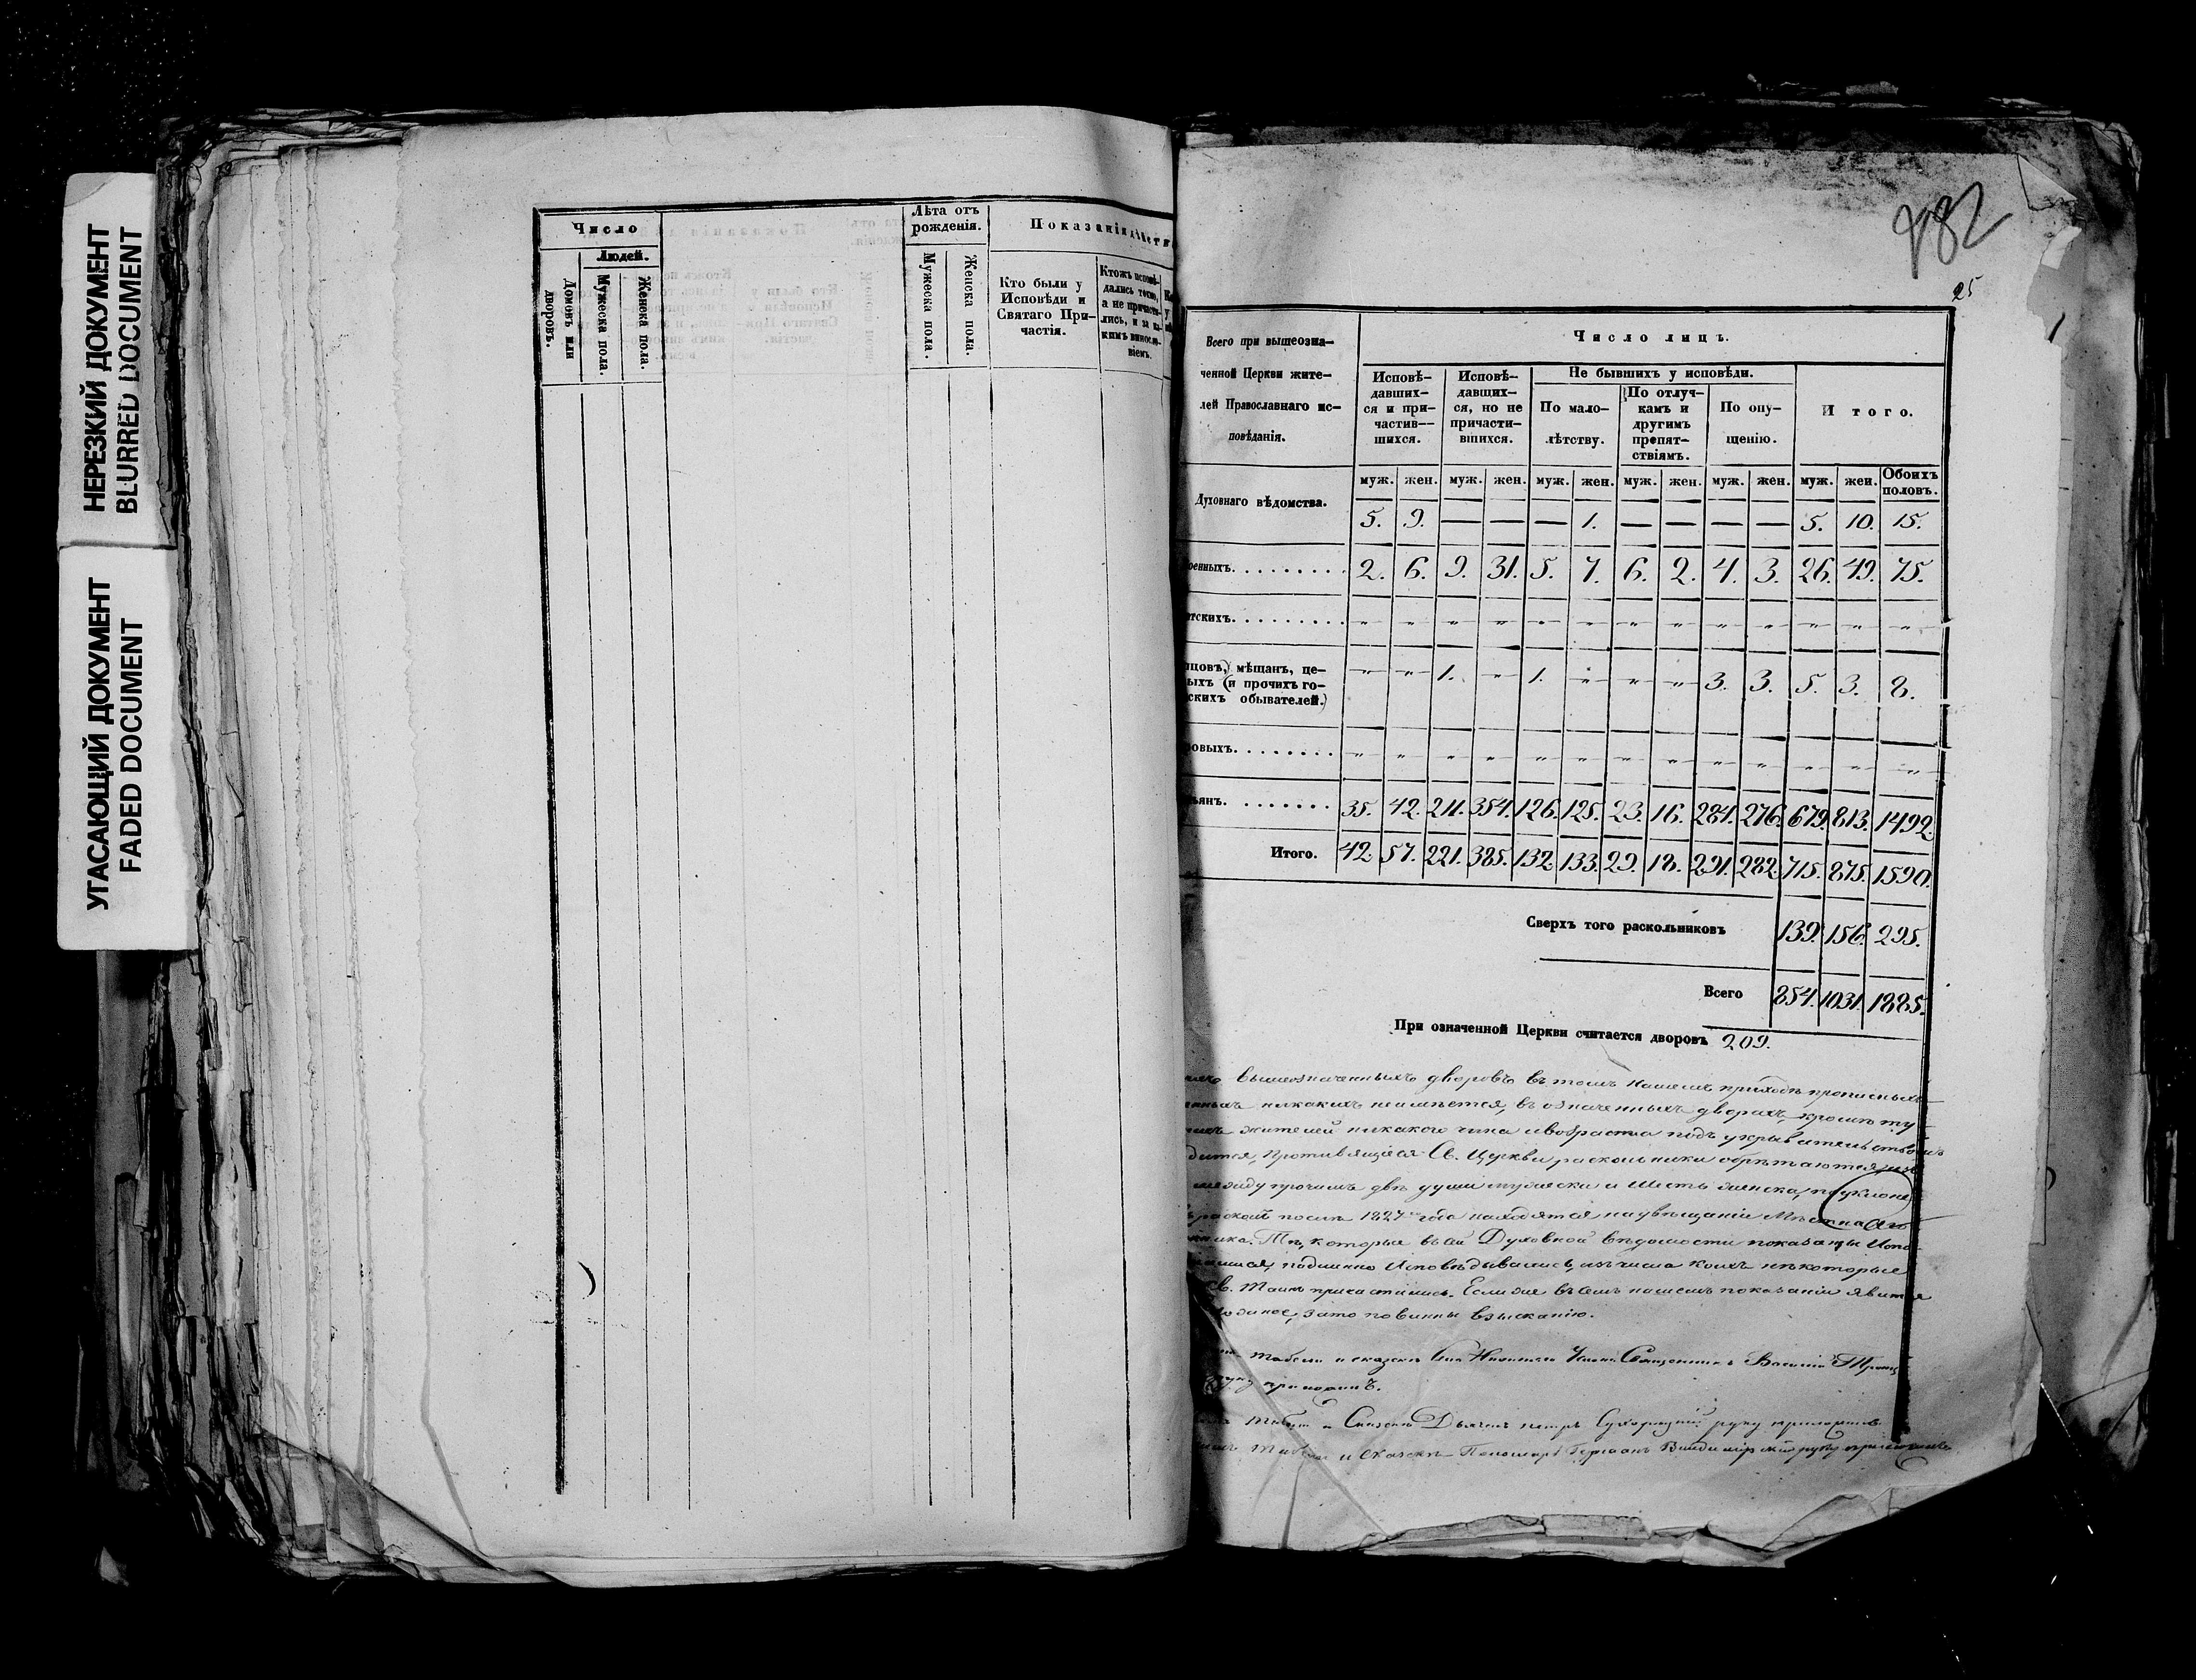 НЕРЕЗКИЙ ДОКУМЕНТ
BLURRED DOCUMENT
УГАСАЮЩИЙ ДОКУМЕНТ
FADED DOCUMENT
Число
Людей.
Домовъ или дворовъ.
Мужеска пола.
Женска пола.
Лѣта отъ рожденія.
Мужеска пола.
Женска пола.
Показанія
Кто были у
Исповѣди и
Святаго При-
частія.
Ктожъ исповѣ-
дались токмо,
а не причасти-
лись, и за ка-
кимъ винословіемъ.
25
Всего при вышеозна-
ченной Церкви жите-
лей Православнаго ис-
повѣданія.
Число лицъ.
Исповѣ-
давших-
ся и при-
частив-
шихся.
Исповѣ-
давших-
ся, но не
причасти-
вшихся.
Не бывшихъ у исповѣди.
По мало-
лѣтству.
По отлуч-
камъ и
другимъ
препят-
ствіямъ.
По опу-
щенію.
Итого.
муж. жен. муж. жен. муж. жен. муж. жен. муж. жен. муж. жен. Обоихъ половъ.
Духовнаго вѣдомства. 5. 9. — — — 1. — — — — 5. 10. 15.
оенныхъ. 2. 6. 9. 31. 5. 7. 6. 2. 4. 3. 26. 49. 75.
тскихъ. „ „ „ „ „ „ „ „ „ „ „ „ „
цовъ,) мѣщанъ, це-
ыхъ (и прочихъ го-
скихъ обывателей.) „ „ 1. „ 1. „ „ „ 3. 3. 5. 3. 8.
ровыхъ. „ „ „ „ „ „ „ „ „ „ „ „ „
янъ. 35. 42. 211. 354. 126. 125. 23. 16. 284. 276. 679. 813. 1492.
Итого. 42. 57. 221. 385. 132. 133. 29. 18. 291. 282. 715. 875. 1590.
Сверхъ того раскольниковъ 139. 156. 295.
Всего 854. 1031. 1885.
При означенной Церкви считается дворовъ 209.
вышеозначенныхъ дворовъ въ томъ нашемъ приходѣ прописныхъ
никакихъ неимѣется, въ означенныхъ дворахъ, кромѣ ту
жителей никакого чина ивозраста подъ укрывательствомъ
Противящіеся Св. Церкви раскольники обрѣтаются
между прочимъ двѣ души мужеска и шесть женска,
1827 года находятся наувѣщаніи
Тѣ, которые въ сей Духовной вѣдомости показаны Испо-
подлинно Исповѣдывались, изъ числа коихъ нѣкоторые
Св. Таинъ причастились. Если же въ семъ нашемъ показаніи явится
зато повинны взысканію.
табели и сказкѣ Священникъ Василій
руку приложилъ.
Дьячекъ Петръ руку приложилъ
и Сказкѣ Пономарь руку приложилъ